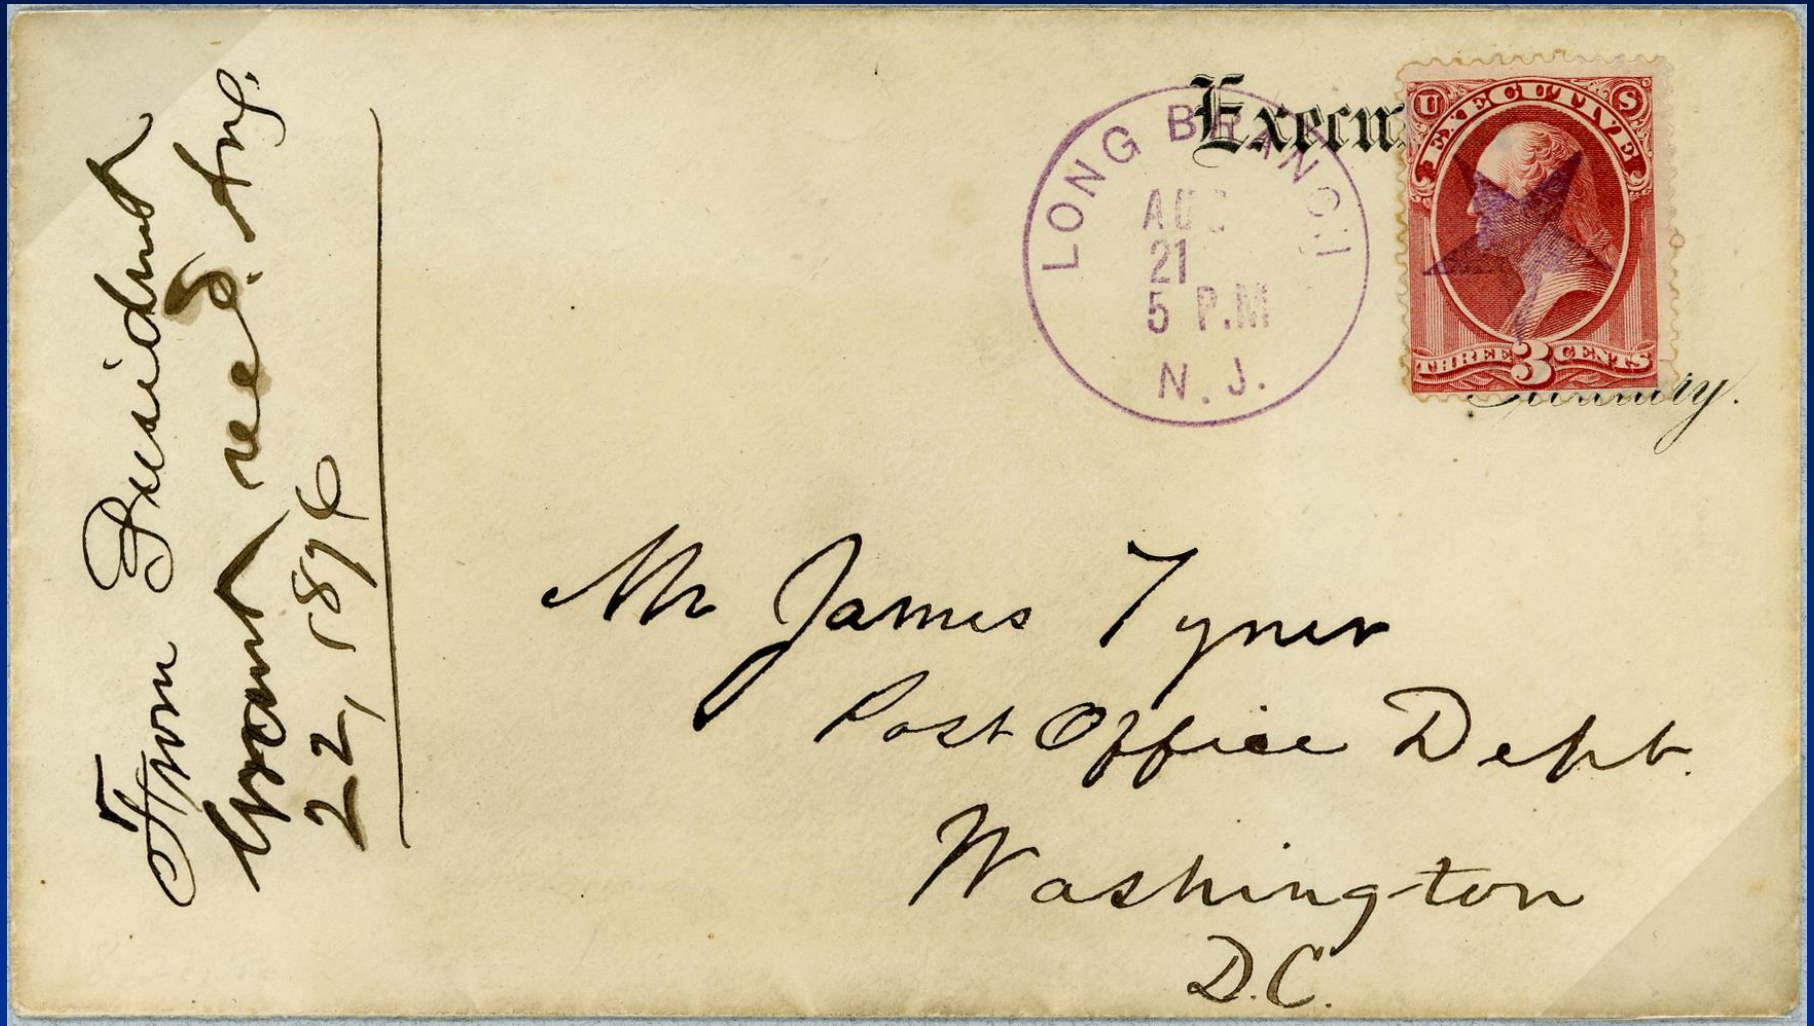 From President
Grant rec'd. Aug.
22, 1876
LONG BRANCH
AUG
21
5 P.M
N. J.
Execu
U S
EXECUTIVE
THREE 3 CENTS
Mr James Tyner
Post Office Dept.
Washington
D.C.